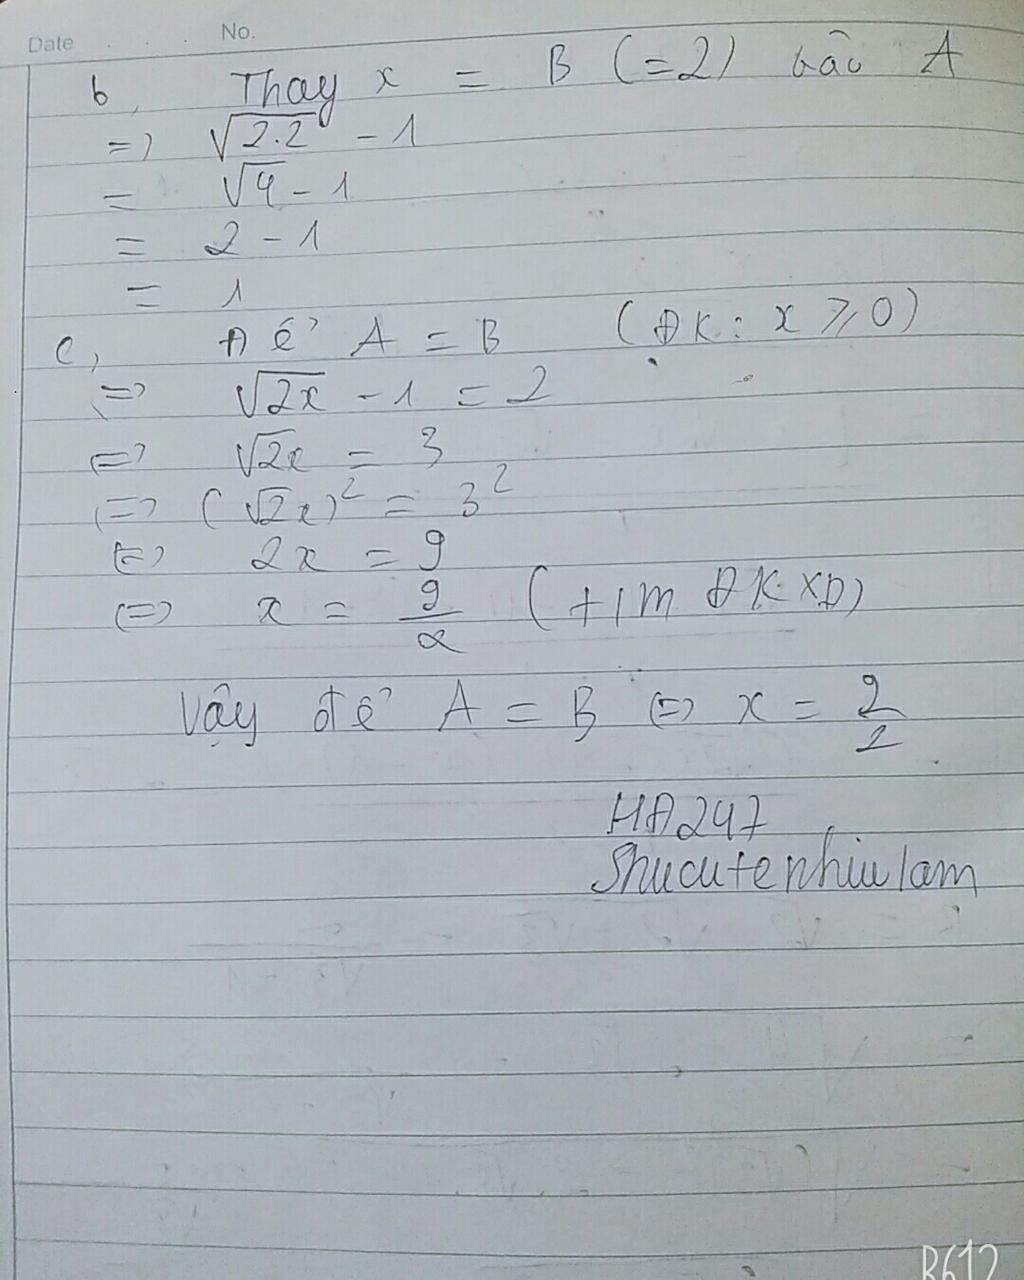 Date . . . No.
b, Thay x = B (=2) vào A
=> √2.2 - 1
= √4 - 1
= 2 - 1
= 1
c, Để A = B (ĐK: x ⩾ 0)
<=> √2x - 1 = 2
<=> √2x = 3
<=> (√2x)² = 3²
<=> 2x = 9
<=> x = 9/2 (t/m ĐKXĐ)
Vậy để A = B <=> x = 9/2
HĐ247
Shucutenhiulam
B612